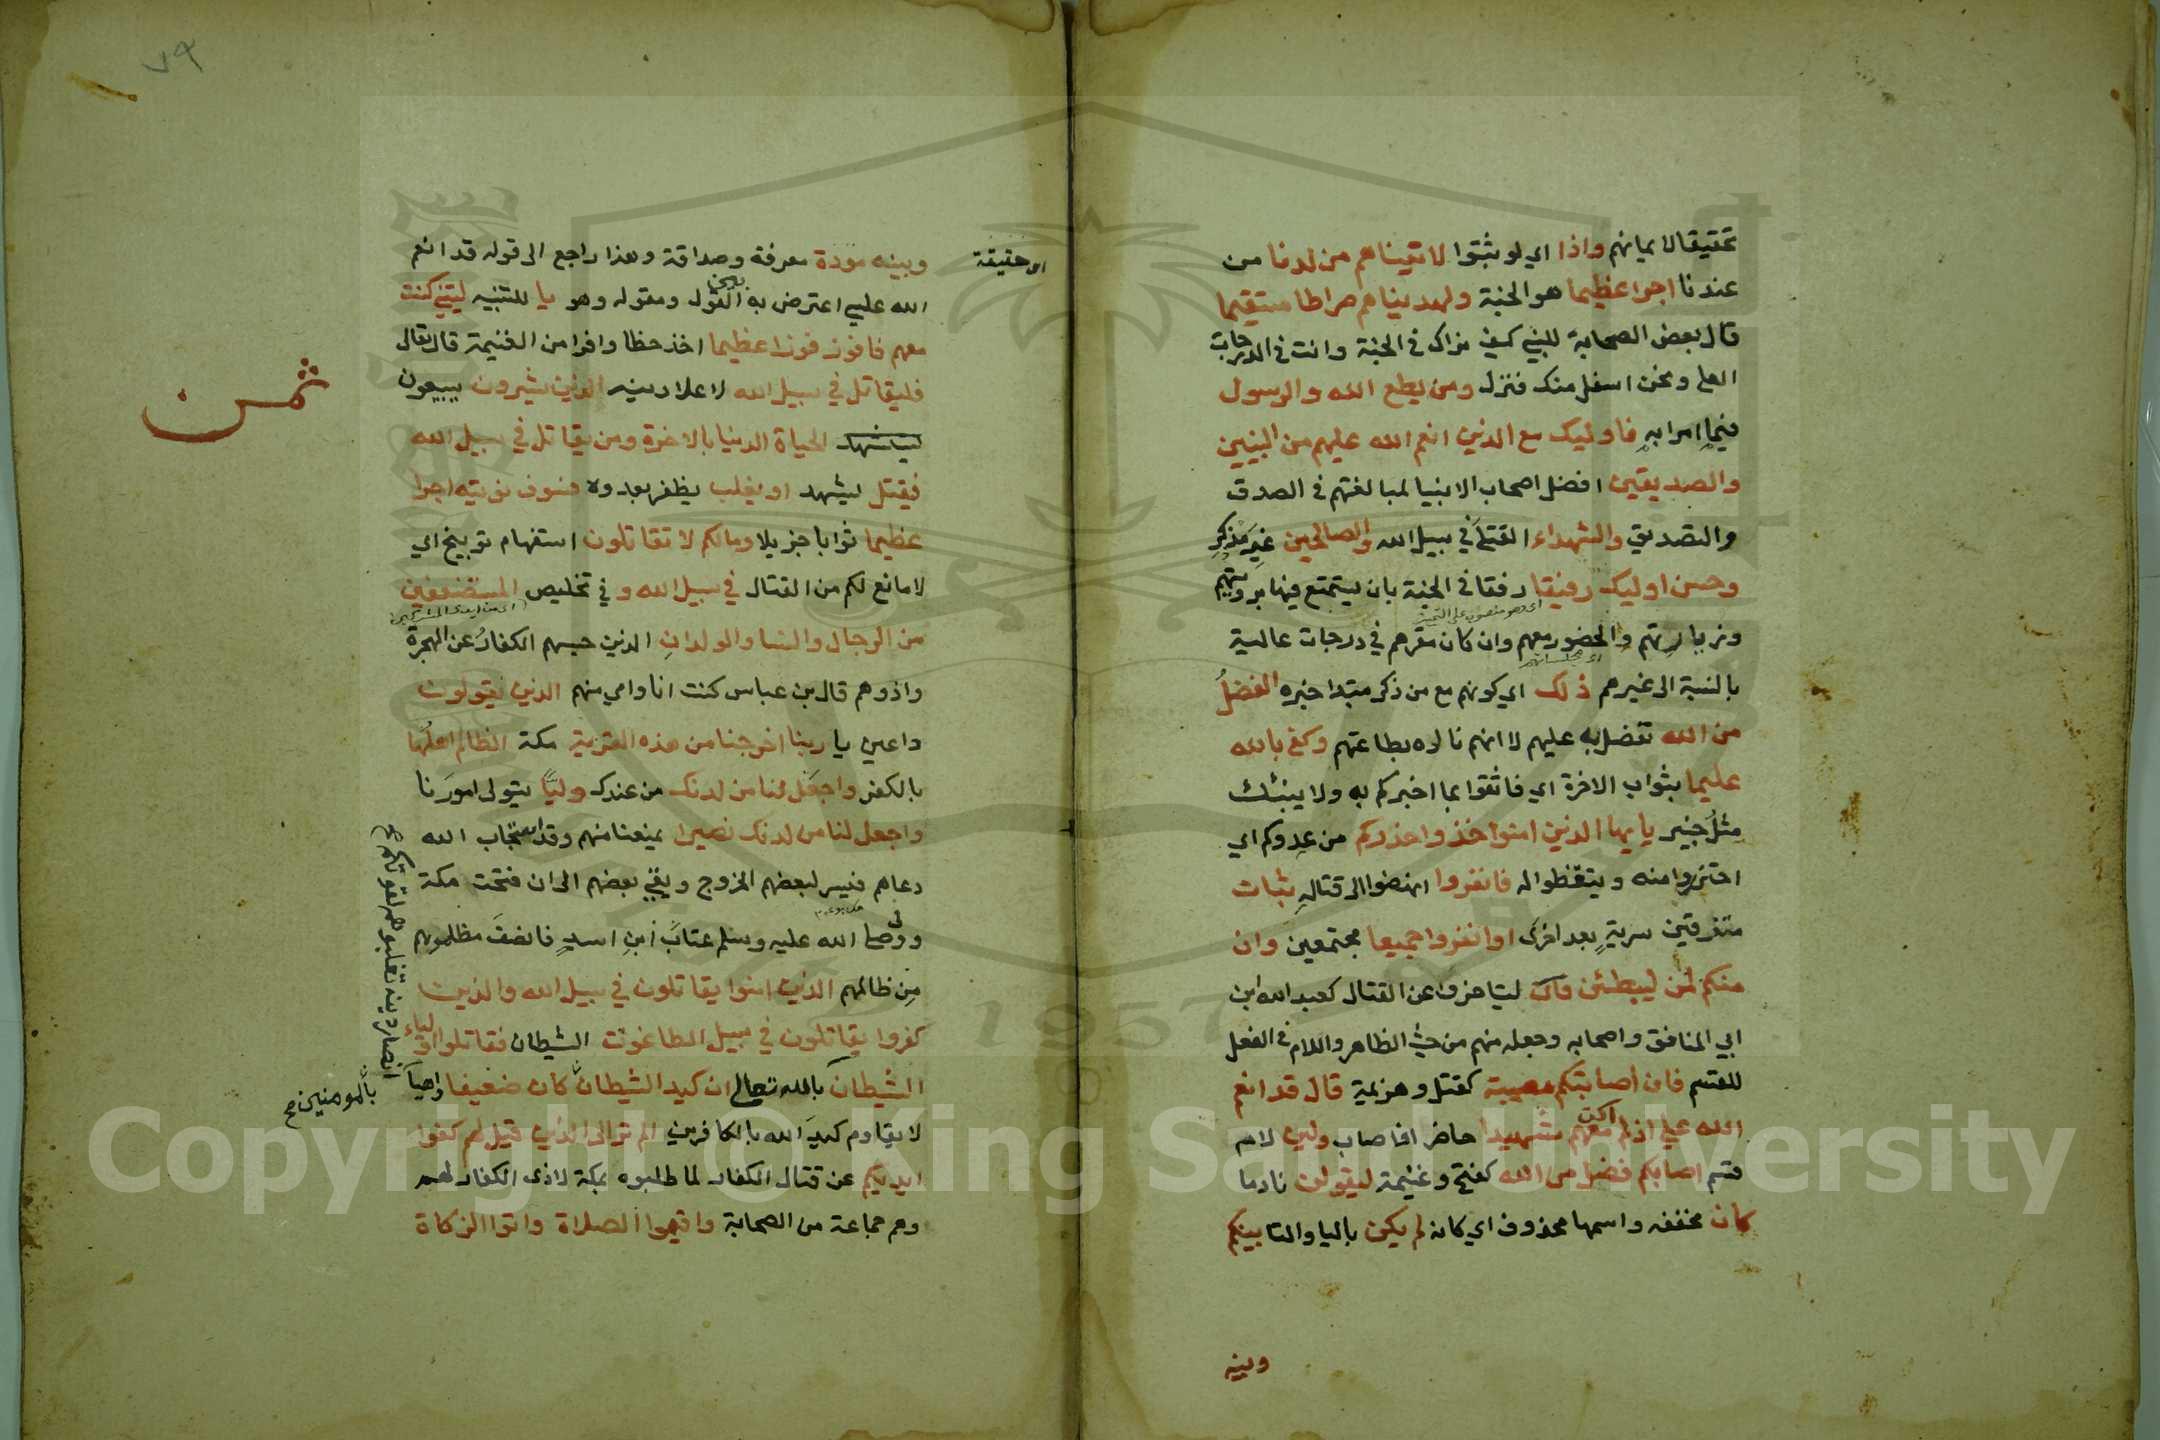 تحقيقا لايمانهم واذا اي لو ثبتوا لاتيناهم من لدنا من
عندنا اجرا عظيما هو الجنة ولهديناهم صراطا مستقيما
قال بعض الصحابة للنبي كيف نراك في الجنة وانت في الدرجات
العلى ونحن اسفل منك فنزل ومن يطع الله والرسول
فيما امرا به فاوليك مع الذين انعم الله عليهم من النبيين
والصديقين افضل اصحاب الانبيا لمبالغتهم في الصدق
والتصديق والشهداء القتلى في سبيل الله والصالحين غير من ذكر
وحسن اوليك رفيقا رفقا في الجنة بان يستمتع فيها برويتهم
وزيارتهم والحضور معهم وان كان مقرهم في درجات عالية
بالنسبة الى غيرهم ذلك اي كونهم مع من ذكر مبتدا خبره الفضل
من الله تفضل به عليهم لا انهم نالوه بطاعتهم وكفى بالله
عليما بثواب الاخرة اي فاثقوا بما اخبركم به ولا ينبئك
مثل خبير يايها الذين امنوا خذوا حذركم من عدوكم اي
احترزوا منه وتيقظوا له فانفروا انهضوا الى قتاله ثبات
متفرقين سرية بعد اخرى او انفروا جميعا مجتمعين وان
منكم لمن ليبطئن ليتاخرن عن القتال كعبد الله ابن
ابي المنافق واصحابه وجعله منهم من حيث الظاهر واللام في الفعل
للقسم فان اصابتكم مصيبة كقتل وهزيمة قال قد انعم
الله علي اذ لم اكن معهم شهيدا حاضرا فاصاب ولين لام
قسم اصابكم فضل من الله كفتح وغنيمة ليقولن نادما
كان مخففه واسمها محذوف اي كانه لم يكن باليا والتا بينكم
وبينه
٧٩
اي حقيقة
وبينه مودة معرفة وصداقة وهذا راجع الى قوله قد انعم
الله علي اعترض به بين القول ومقوله وهو يا للتنبيه ليتني كنت
معهم فافوز فوزا عظيما اخذ حظا وافرا من الغنيمة قال تعالى
فليقاتل في سبيل الله لاعلا دينه الذين يشرون يبيعون
الحياة الدنيا بالاخرة ومن يقاتل في سبيل الله
فيقتل ليشهد او يغلب يظفر بعدوه فسوف نوتيه اجرا
عظيما ثوابا جزيلا ومالكم لا تقاتلون استفهام توبيخ اي
لا مانع لكم من القتال في سبيل الله وفي تخليص المستضعفين
من الرجال والنسا والولدان الذين حبسهم الكفار عن الهجرة
واذوهم قال بن عباس كنت انا وامي منهم الذين يقولون
داعين يا ربنا اخرجنا من هذه القرية مكة الظالم اهلها
بالكفر واجعل لنا من لدنك من عندك وليا يتولى امورنا
واجعل لنا من لدنك نصيرا يمنعنا منهم وقد استجاب الله
دعاهم فيسر لبعضهم الخروج وبقي بعضهم الى ان فتحت مكة
وولى صلى الله عليه وسلم عتاب ابن اسيد فانصف مظلومهم
من ظالمهم الذين امنوا يقاتلون في سبيل الله والذين
كفروا يقاتلون في سبيل الطاغوت الشيطان فقاتلوا اولياء
الشيطان بالله تعالى ان كيد الشيطان كان ضعيفا واهيا
لا يقاوم كيد الله بالكافرين الم تر الى الذين قيل لهم كفوا
ايديكم عن قتال الكفار لما طلبوه بمكة لاذى الكفار لهم
وهم جماعة من الصحابة واقيموا الصلاة واتوا الزكاة
انصار دينه تغلبوهم لقوتكم
بالمومنين صح
ثمن
Copyright © King Saud University
1957